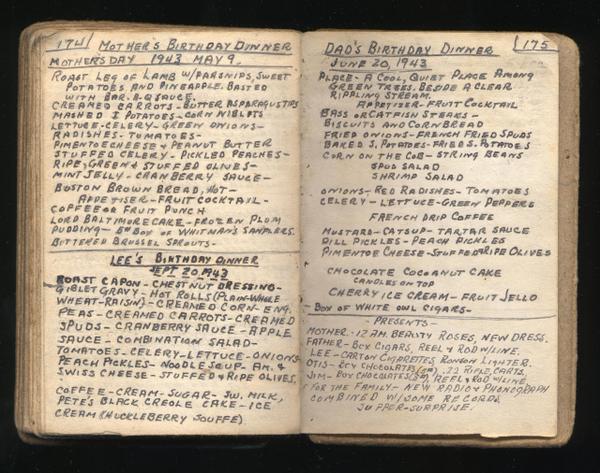 174 MOTHER'S BIRTHDAY DINNER
MOTHERS DAY 1943 MAY 9.
ROAST LEG OF LAMB W/PARSNIPS, SWEET
POTATOES AND PINEAPPLE. BASTED
WITH BAR-B-Q SAUCE.
CREAMED CARROTS - BUTTER ASPARAGUSTIPS
MASHED I POTATOES - CORN NIBLETS
LETTUCE - CELERY - GREEN ONIONS -
RADISHES - TOMATOES -
PIMENTOE CHEESE & PEANUT BUTTER
STUFFED CELERY - PICKLED PEACHES -
RIPE, GREEN & STUFFED OLIVES -
MINT JELLY - CRANBERRY SAUCE -
BOSTON BROWN BREAD, HOT -
APPETISER - FRUIT COCKTAIL -
COFFEE OR FRUIT PUNCH
LORD BALTIMORE CAKE - FROZEN PLUM
PUDDING - 5# BOX OF WHITMAN'S SAMPLERS.
BUTTERED BRUSSEL SPROUTS -
LEE'S BIRTHDAY DINNER
SEPT 20, 1943
ROAST CAPON - CHESTNUT DRESSING -
GIBLET GRAVY - HOT ROLLS (PLAIN - WHOLE
WHEAT - RAISIN) - CREAMED CORN - ENG.
PEAS - CREAMED CARROTS - CREAMED
SPUDS - CRANBERRY SAUCE - APPLE
SAUCE - COMBINATION SALAD -
TOMATOES - CELERY - LETTUCE - ONIONS
PEACH PICKLES - NOODLE SOUP - AM. &
SWISS CHEESE - STUFFED & RIPE OLIVES.
COFFEE - CREAM - SUGAR - SW. MILK,
PETE'S BLACK CREOLE CAKE - ICE
CREAM (HUCKLEBERRY SOUFFE)
DAD'S BIRTHDAY DINNER 175
JUNE 20, 1943
PLACE - A COOL, QUIET PLACE AMONG
GREEN TREES. BESIDE A CLEAR
RIPPLING STREAM.
APPETIZER - FRUIT COCKTAIL
BASS OR CATFISH STEAKS -
BISCUITS AND CORN BREAD
FRIED ONIONS - FRENCH FRIED SPUDS
BAKED S. POTATOES - FRIED S. POTATOES
CORN ON THE COB - STRING BEANS
SPUD SALAD
SHRIMP SALAD
ONIONS - RED RADISHES - TOMATOES
CELERY - LETTUCE - GREEN PEPPERS
FRENCH DRIP COFFEE
MUSTARD - CATSUP - TARTAR SAUCE
DILL PICKLES - PEACH PICKLES
PIMENTOE CHEESE - STUFFED & RIPE OLIVES
CHOCOLATE COCOANUT CAKE
CANDLES ON TOP
CHERRY ICE CREAM - FRUIT JELLO
BOX OF WHITE OWL CIGARS -
- PRESENTS -
MOTHER - 12 AM. BEAUTY ROSES, NEW DRESS.
FATHER - BOX CIGARS, REEL & ROD W/LINE.
LEE - CARTON CIGARETTES, RONSON LIGHTER.
OTIS - BOX CHOCOLATES (5#) .22 RIFLE, CARTS.
JIM - BOX CHOCOLATES (5#), REEL & ROD W/LINE
FOR THE FAMILY - NEW RADIO & PHONOGRAPH
COMBINED W/SOME RECORDS
SUPPER - SURPRISE.